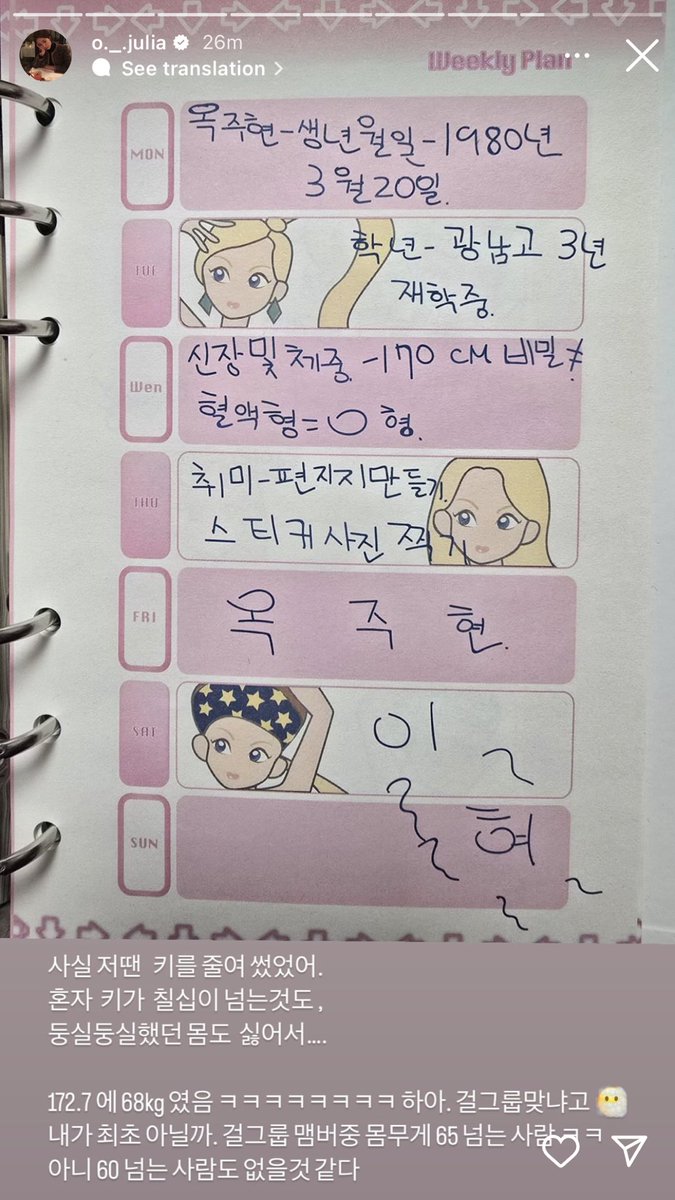 o._.julia 26m
See translation >
Weekly Plan
MON
옥주현-생년월일-1980년
3월20일.
TUE
학년- 광남고 3년
재학중.
Wen
신장및체중-170 CM 비밀≠
혈액형=O형.
THU
취미-편지지만들기.
스티커사진찍기
FRI
옥 주 현.
SAT
SUN
사실 저땐 키를 줄여 썼었어.
혼자 키가 칠십이 넘는것도,
둥실둥실했던 몸도 싫어서....
172.7 에 68kg 였음 ㅋㅋㅋㅋㅋㅋㅋㅋ 하아. 걸그룹맞냐고 😶
내가 최초 아닐까. 걸그룹 맴버중 몸무게 65 넘는 사람 ㅋㅋ
아니 60 넘는 사람도 없을것 같다